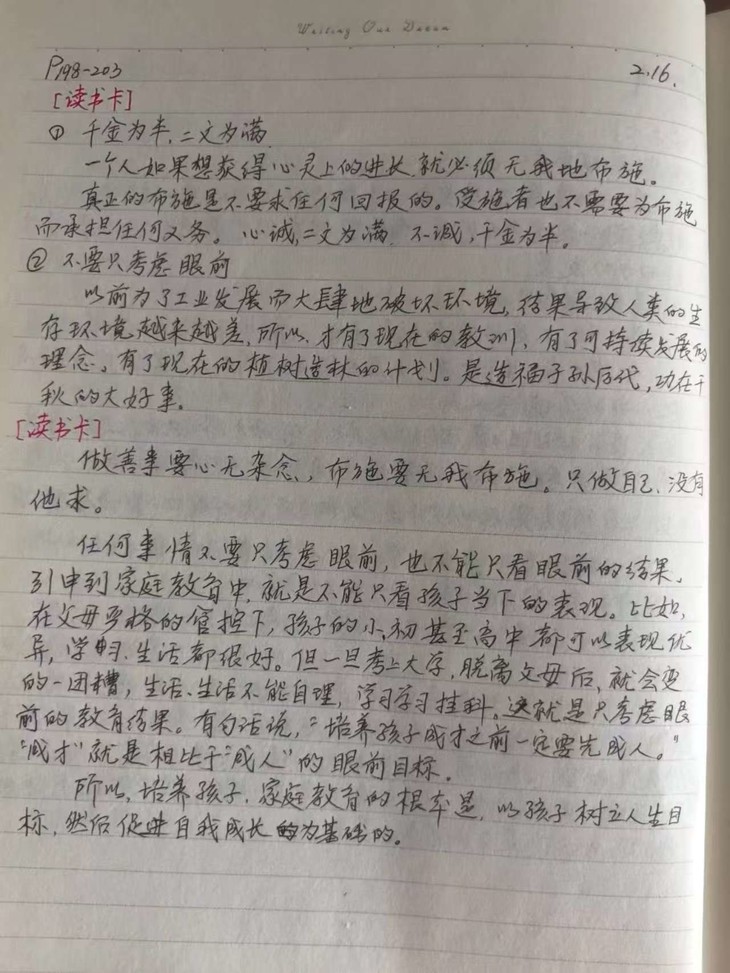 Writing Our Dream
P198-203 2.16.
[读书卡]
① 千金为半,二文为满.
一个人如果想获得心灵上的进长,就必须无我地布施。
真正的布施是不要求任何回报的。受施者也不需要为布施
而承担任何义务。心诚,二文为满. 不诚,千金为半。
② 不要只考虑眼前
以前为了工业发展而大肆地破坏环境,结果导致人类的生
存环境越来越差,所以,才有了现在的教训,有了可持续发展的
理念。有了现在的植树造林的计划。是造福子孙后代,功在千
秋的大好事.
[读书卡]
做善事要心无杂念,布施要无我布施。只做自己,没有
他求。
任何事情不要只考虑眼前,也不能只看眼前的结果,
引申到家庭教育中,就是不能只看孩子当下的表现。比如,
在父母严格的管控下,孩子的小、初甚至高中都可以表现优
异,学习、生活都很好。但一旦考上大学,脱离父母后,就会变
的一团糟,生活、生活不能自理,学习学习挂科。这就是只考虑眼
前的教育结果。有句话说,“培养孩子成才之前一定要先成人。”
“成才”就是相比于“成人”的眼前目标.
所以,培养孩子,家庭教育的根本是,以孩子树立人生目
标,然后促进自我成长的为基础的。